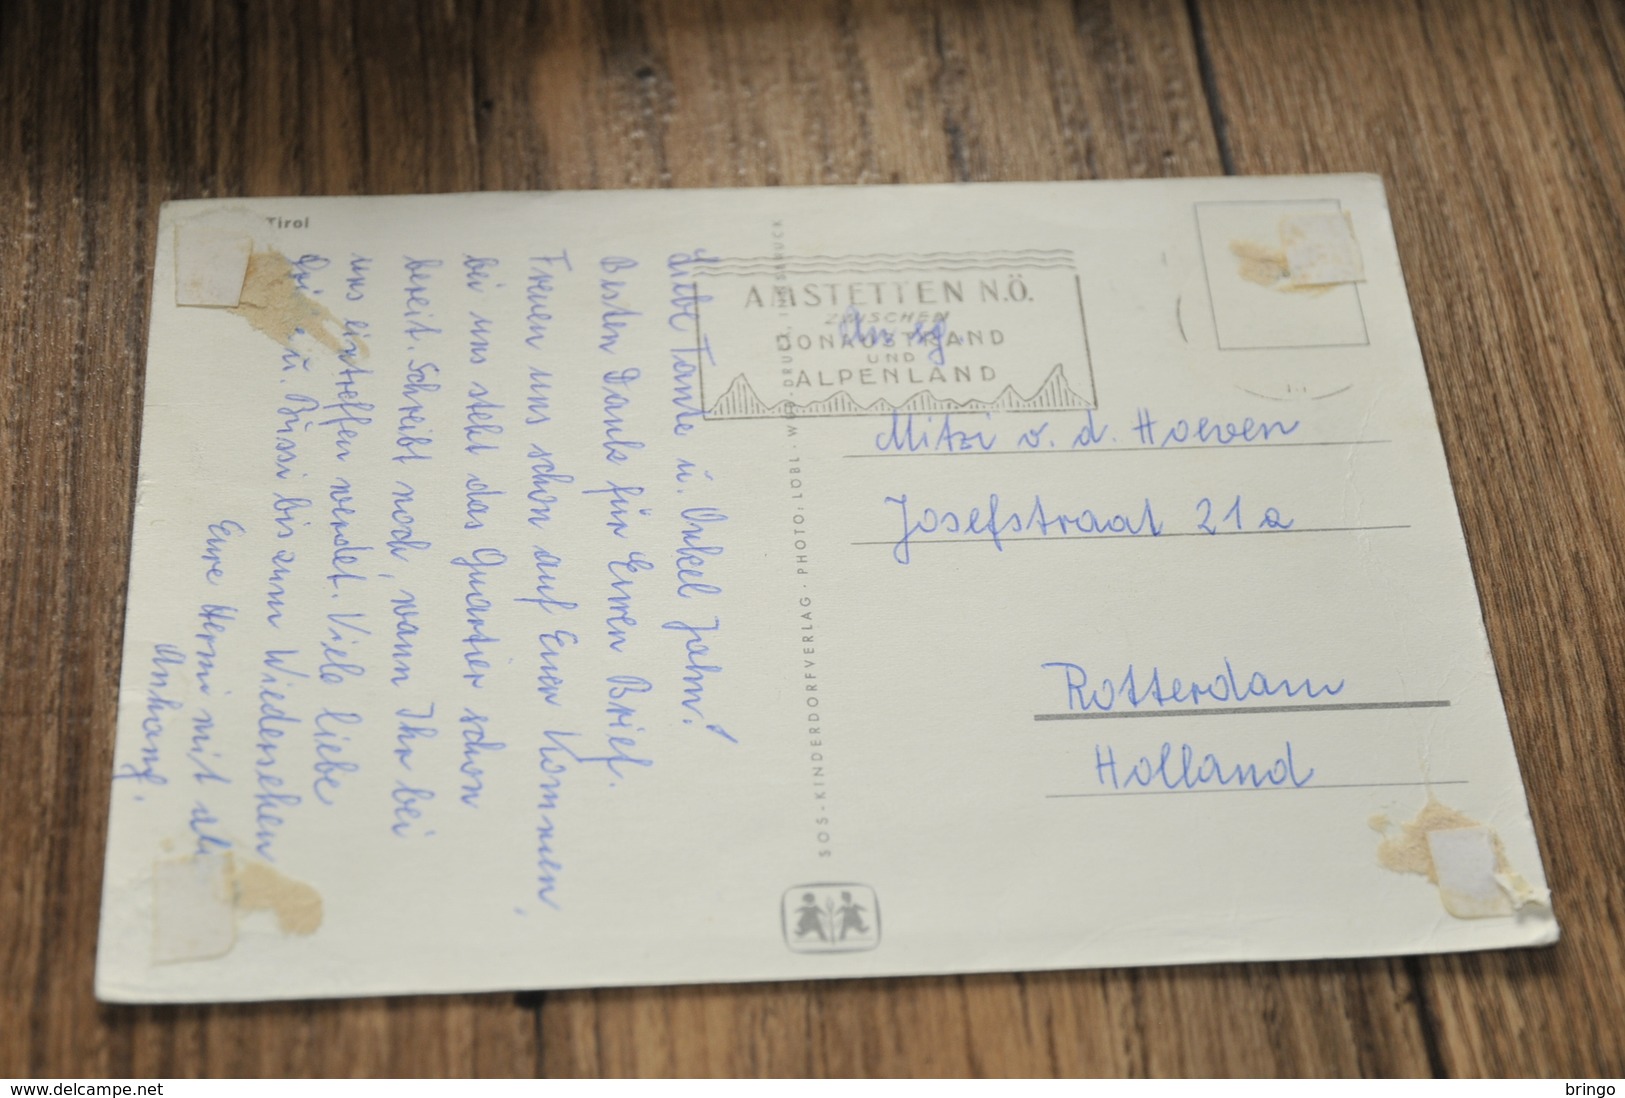 Tirol
Liebe Tante u. Onkel Jahn!
Besten Dank für Euren Brief.
Freuen uns schon auf Euer Kommen,
bei uns steht das Quartier schon
bereit. Schreibt noch, wann Ihr bei
uns eintreffen werdet. Viele liebe
u. Bussi bis zum Wiedersehen
Eure Hermi mit all
Anhang.
SOS-KINDERDORFVERLAG · PHOTO: LOBL ·
AMSTETTEN N.Ö.
ZWISCHEN
DONAUSTRAND
UND
ALPENLAND
Mitzi v. d. Hoeven
Josefstraat 21a
Rotterdam
Holland
www.delcampe.net
bringo